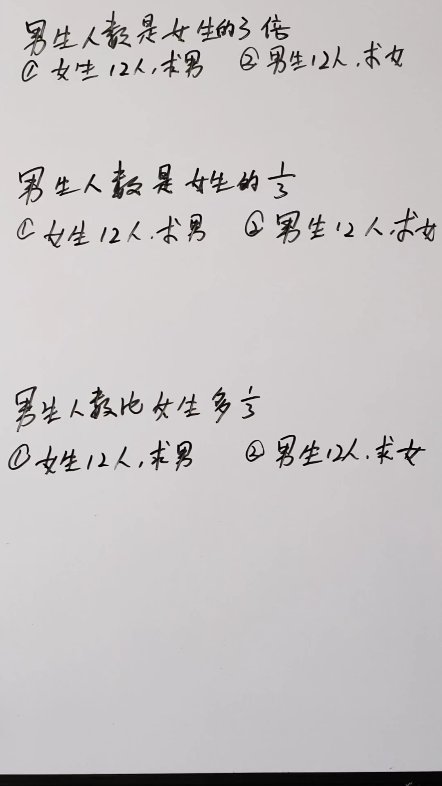 男生人数是女生的3倍
① 女生12人,求男 ② 男生12人,求女
男生人数是女生的1/3
① 女生12人,求男 ② 男生12人,求女
男生人数比女生多1/3
① 女生12人,求男 ② 男生12人,求女